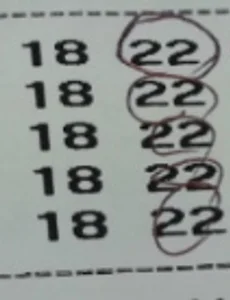 18 22
18 22
18 22
18 22
18 22